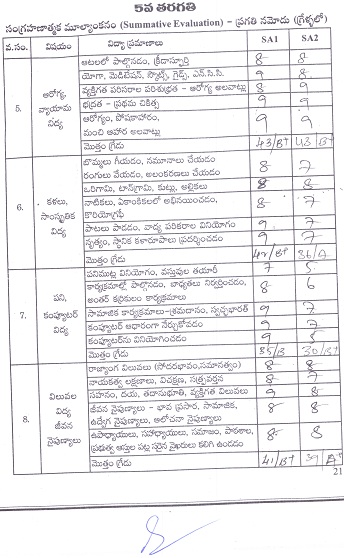 5వ తరగతి
సంగ్రహణాత్మక మూల్యాంకనం (Summative Evaluation) – ప్రగతి నమోదు (గ్రేళ్ళలో)
వ.సం. విషయం విద్యా ప్రమాణాలు SA1 SA2
5. ఆరోగ్య, వ్యాయామ విద్య
ఆటలలో పాల్గొనడం, క్రీడాస్ఫూర్తి 8 8
యోగా, మెడిటేషన్, స్కౌట్స్, గైడ్స్, ఎన్.సి.సి. 9 8
వ్యక్తిగత పరిసరాల పరిశుభ్రత – ఆరోగ్య అలవాట్లు 8 9
భద్రత – ప్రథమ చికిత్స 9 9
ఆరోగ్యం, పోషకాహారం,
మంచి ఆహార అలవాట్లు 9 9
మొత్తం గ్రేడు 43/B+ 43 B+
6. కళలు, సాంస్కృతిక విద్య
బొమ్మలు గీయడం, నమూనాలు చేయడం
రంగులు వేయడం, అలంకరణలు చేయడం 8 7
ఒరిగామి, టాన్‌గ్రామ్, కుట్లు, అల్లికలు 8 8
నాటికలు, ఏకాంకికలలో అభినయించడం,
కొరియోగ్రఫీ 8 7
పాటలు పాడడం, వాద్య పరికరాల వినియోగం 9 7
నృత్యం, స్థానిక కళారూపాలు ప్రదర్శించడం 9 7
మొత్తం గ్రేడు 42/B+ 36/A
7. పని, కంప్యూటర్ విద్య
పనిముట్ల వినియోగం, వస్తువుల తయారీ 7 5
కార్యక్రమాల్లో పాల్గొనడం, బాధ్యతలు నిర్వర్తించడం,
అంతర్ కర్రికులం కార్యక్రమాలు 8 6
సామాజిక కార్యక్రమాలు–శ్రమదానం, స్వచ్ఛభారత్ 9 7
కంప్యూటర్ ఆధారంగా నేర్చుకోవడం 9 7
కంప్యూటర్‌ను వినియోగించడం 9 5
మొత్తం గ్రేడు 35/B 30/B+
8. విలువల విద్య జీవన నైపుణ్యాలు
రాజ్యాంగ విలువలు (సోదరభావం,సమానత్వం) 8 8
నాయకత్వ లక్షణాలు, విచక్షణ, సత్ప్రవర్తన 8 7
సహనం, దయ, తదానుభూతి, వ్యక్తిగత విలువలు 9 8
జీవన నైపుణ్యాలు – భావ ప్రసార, సామాజిక,
ఉద్వేగ నైపుణ్యాలు, ఆలోచనా నైపుణ్యాలు 8 8
ఉపాధ్యాయులు, సహాధ్యాయులు, సమాజం, పాఠశాల,
ప్రభుత్వ ఆస్తుల పట్ల సరైన వైఖరులు కలిగి ఉండడం 8 8
మొత్తం గ్రేడు 41/B+ 39/A+
21